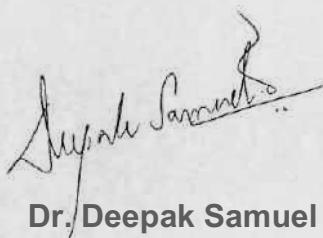 Deepak Samuel
Dr. Deepak Samuel